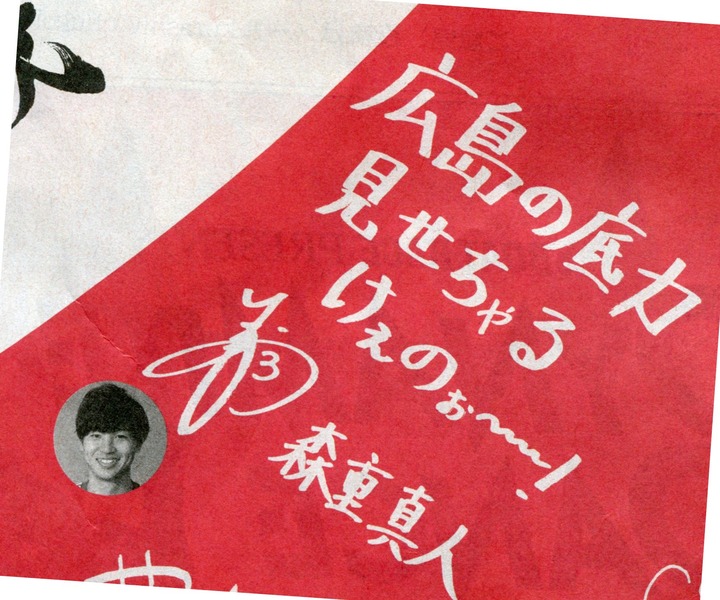 広島の底力
見せちゃる
けぇのぉ〜〜!
3
森重真人